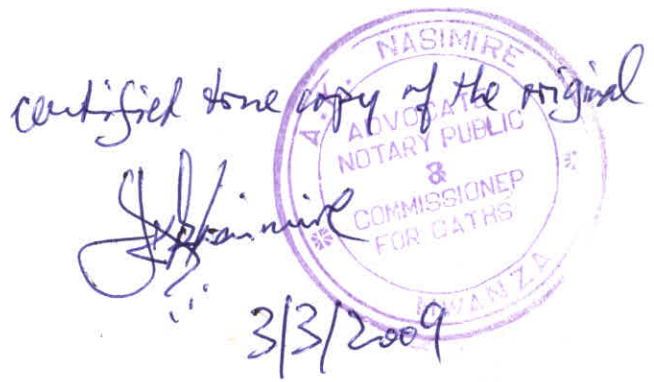 certified true copy of the original
A. K. NASIMIRE
ADVOCATE
NOTARY PUBLIC
&
COMMISSIONER
FOR OATHS
MWANZA
3/3/2009